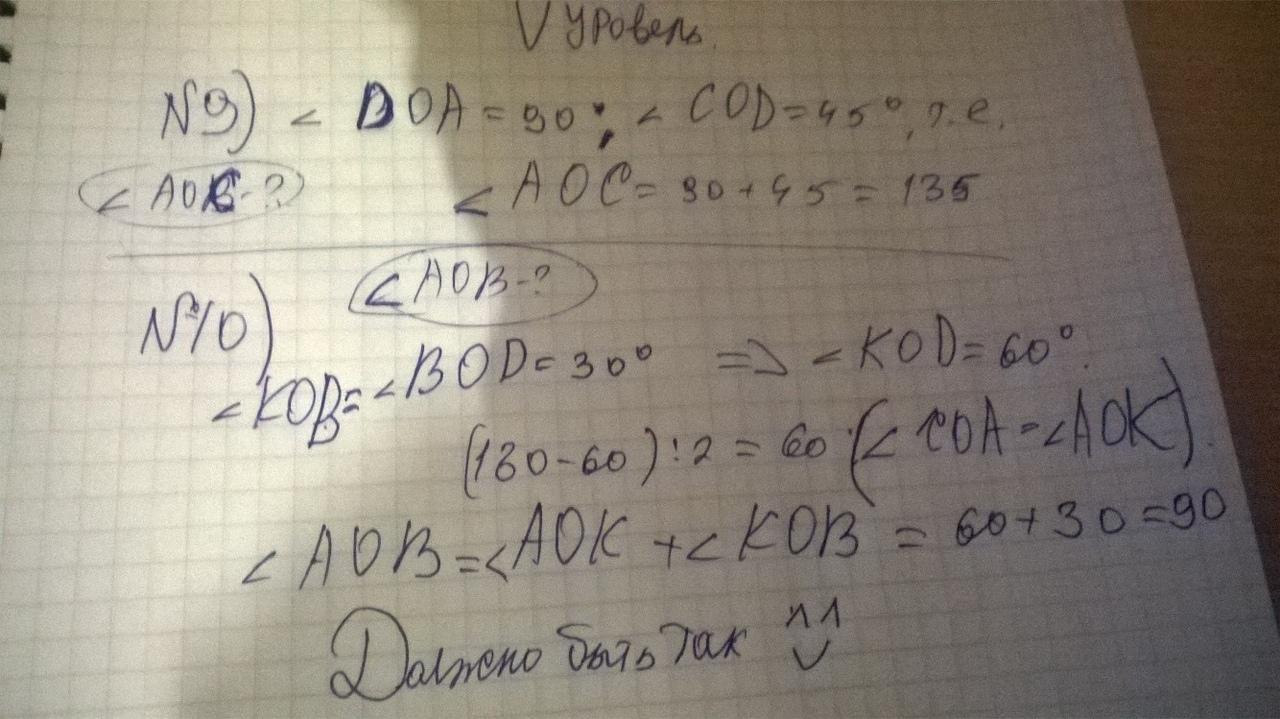 V уровень.
N9) < DOA = 90°; < COD = 45°, т.е.
< AOC - ? < AOC = 90 + 45 = 135
< AOB - ?
N10)
< KOB = < BOD = 30° => < KOD = 60°.
(180 - 60) : 2 = 60 (< COA = < AOK).
< AOB = < AOK + < KOB = 60 + 30 = 90
Должно быть так ^^